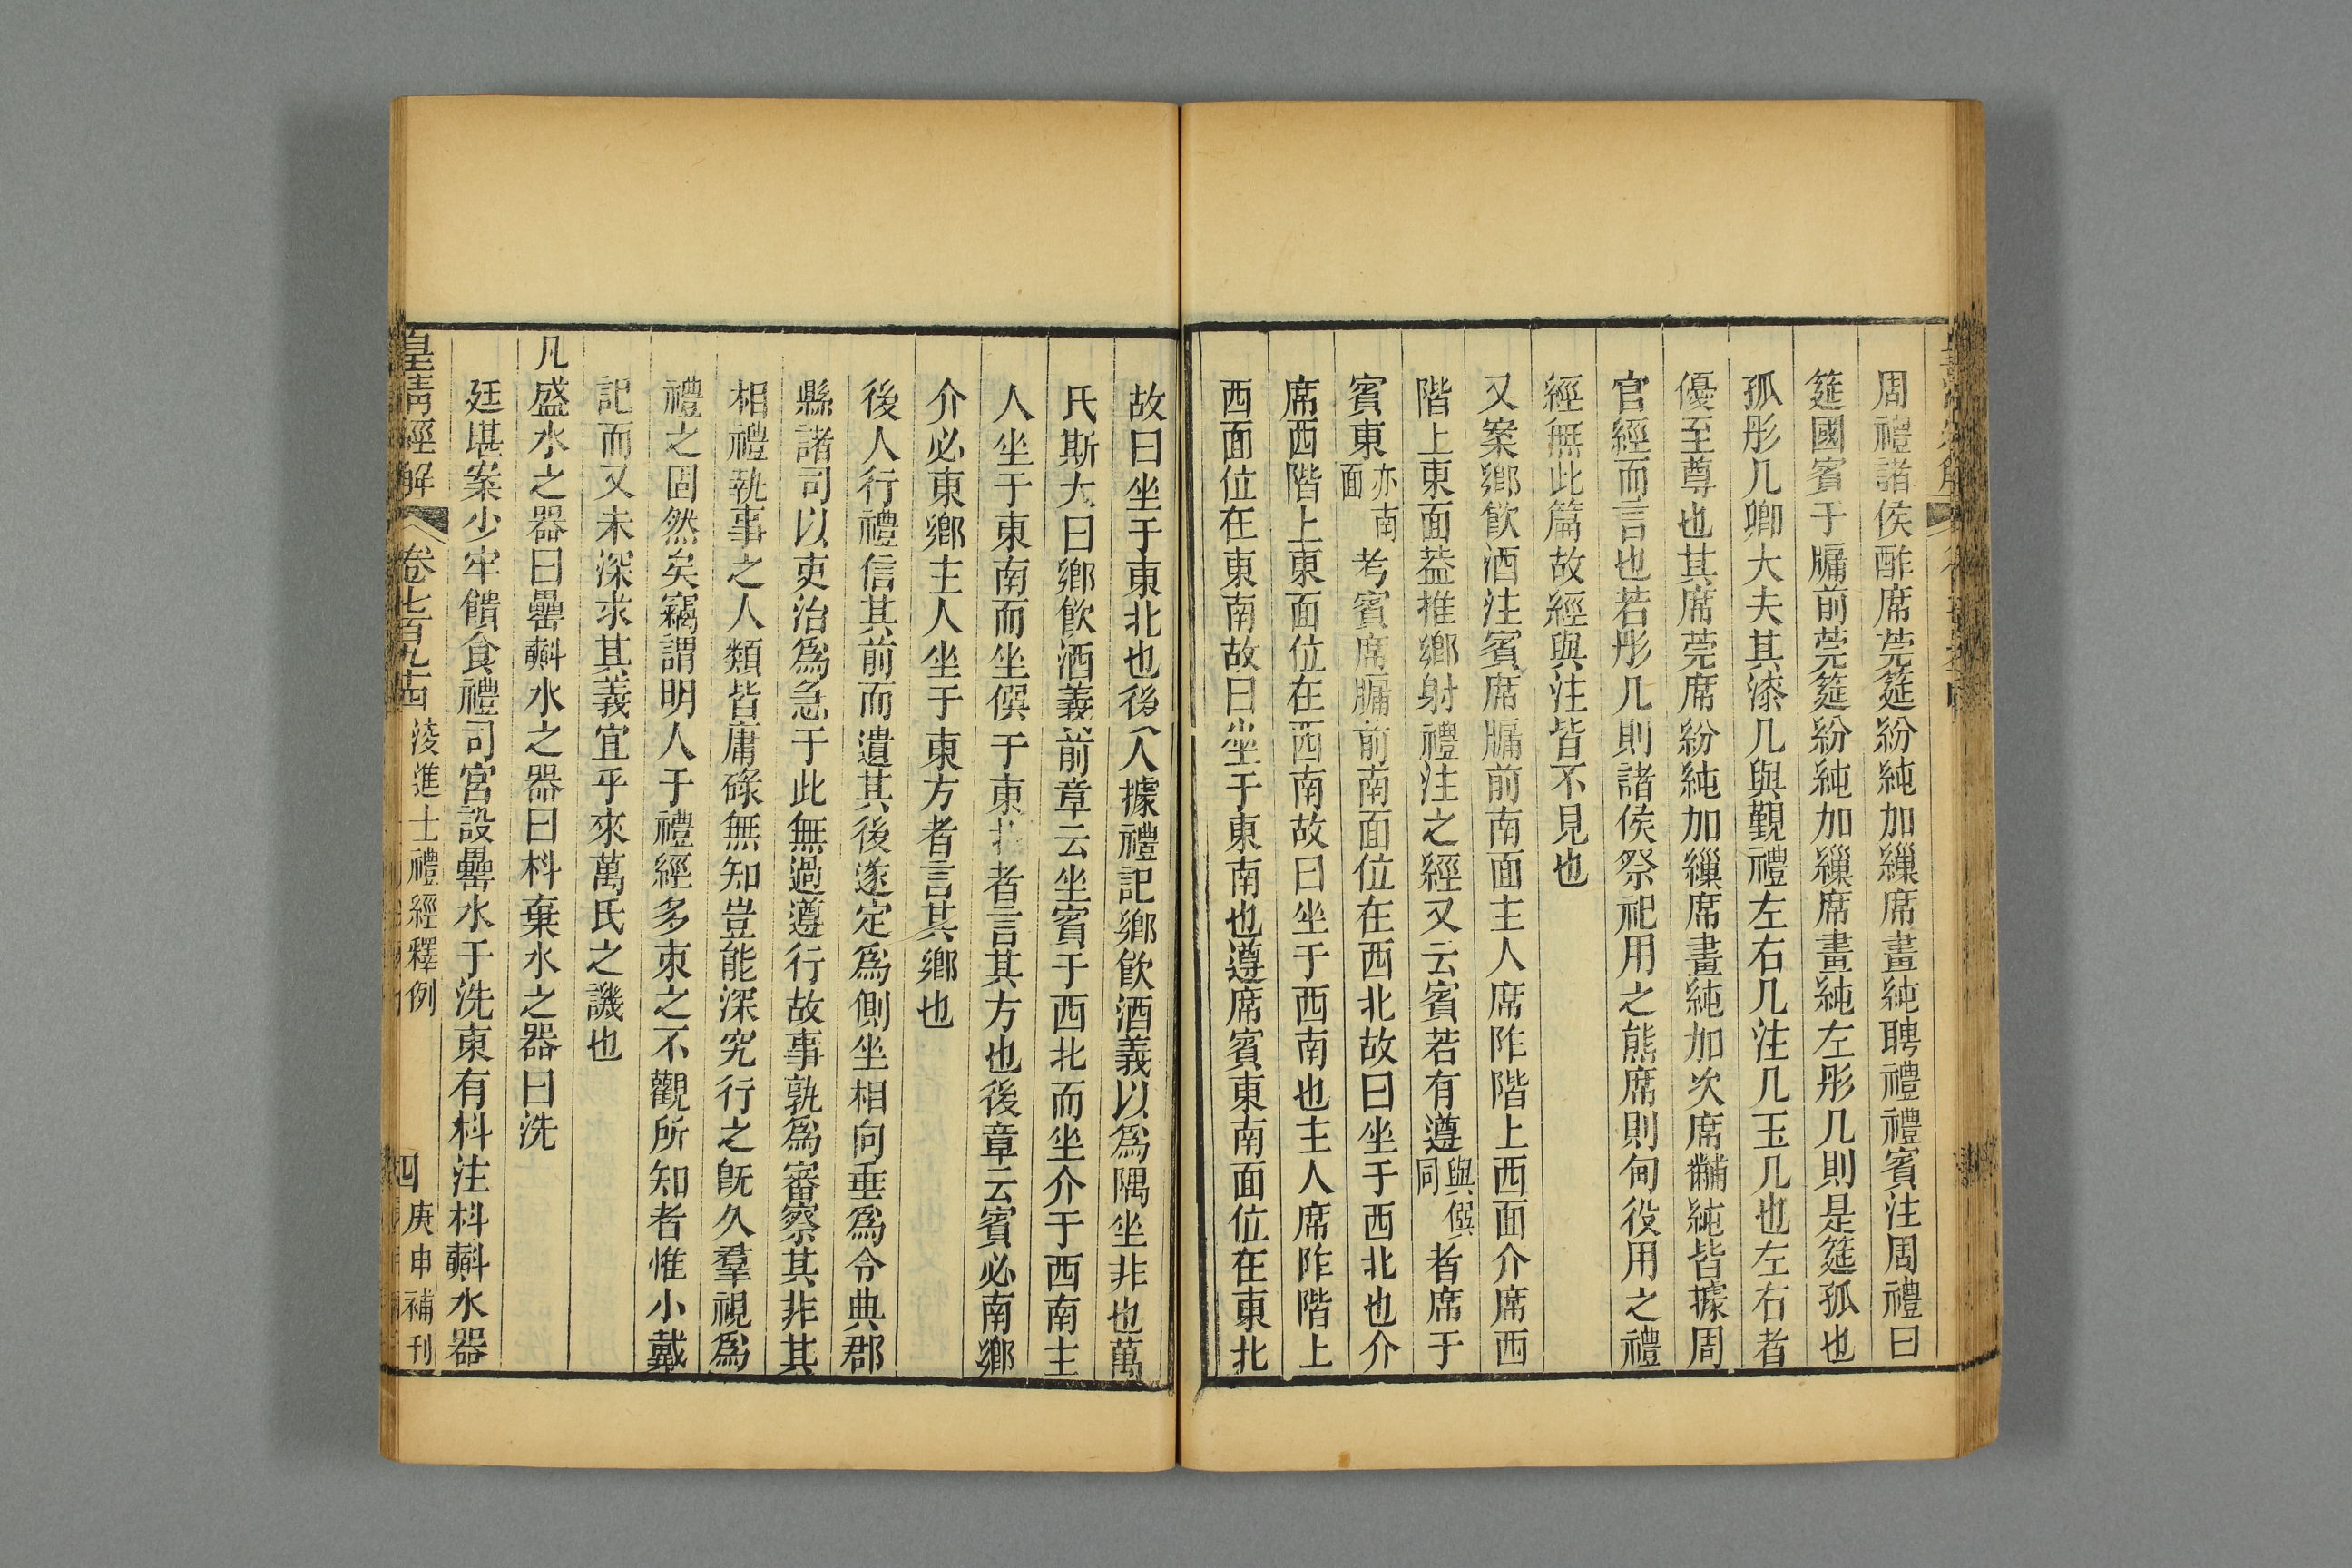 周禮諸侯酢席莞筵紛純加繅席畫純聘禮禮賓注周禮曰
筵國賓于牖前莞筵紛純加繅席畫純左彤几則是筵孤也
孤彤几卿大夫其漆几與覲禮左右几注几玉几也左右者
優至尊也其席莞席紛純加繅席畫純加次席黼純皆據周
官經而言也若彤几則諸侯祭祀用之熊席則甸役用之禮
經無此篇故經與注皆不見也
又案鄉飲酒注賓席牖前南面主人席阼階上西面介席西
階上東面葢推鄉射禮注之經又云賓若有遵與僎同者席于
賓東亦南面考賓席牖前南面位在西北故曰坐于西北也介
席西階上東面位在西南故曰坐于西南也主人席阼階上
西面位在東南故曰坐于東南也遵席賓東南面位在東北
故曰坐于東北也後人據禮記鄉飲酒義以為隅坐非也萬
氏斯大曰鄉飲酒義前章云坐賓于西北而坐介于西南主
人坐于東南而坐僎于東北者言其方也後章云賓必南鄉
介必東鄉主人坐于東方者言其鄉也
後人行禮信其前而遺其後遂定為側坐相向垂為令典郡
縣諸司以吏治為急于此無過遵行故事孰為審察其非其
相禮執事之人類皆庸碌無知豈能深究行之旣久羣視為
禮之固然矣竊謂明人于禮經多束之不觀所知者惟小戴
記而又未深求其義宜乎來萬氏之譏也
凡盛水之器曰罍㪺水之器曰枓棄水之器曰洗
廷堪案少牢饋食禮司宮設罍水于洗東有枓注枓㪺水器
皇清經解 卷七百九十四 淩進士禮經釋例 四 庚申補刊